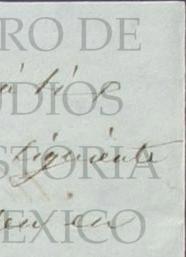 RO DE
á tí y
UDIOS
siguiente
STORIA
en
EXICO